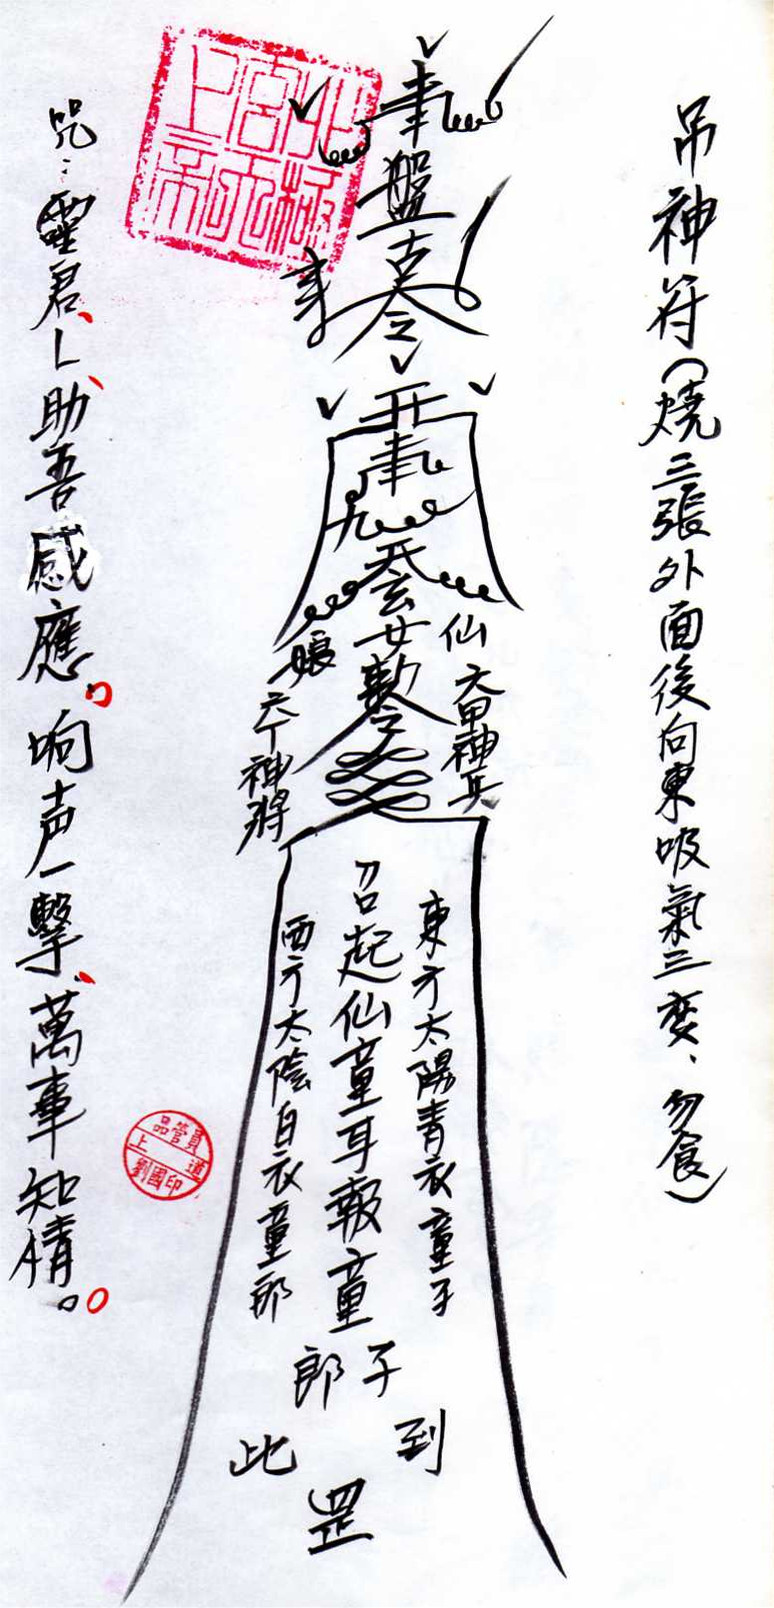 吊神符(燒三張外面後向東吸氣三变、勿食)
奉盤古令
奉
开奉
九天玄女勅令
仙
娘
六甲神兵
六丁神將
東方太陽青衣童子
召起仙童耳報童
子
郎
西方太陰白衣童郎
到
此
罡
咒：靈君、乚、助吾感應。响声一擊、萬事知情。
北極
宮玄
上帝
品管員
上 道
劉國印